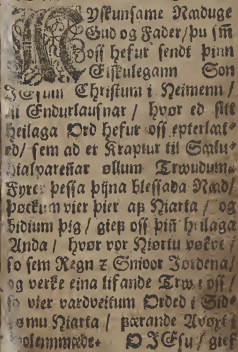 MYskunsame Næduge
Gud og Fader/þu sm̄
oss hefur sendt þinn
Elskulegann Son
JEsum Christum i Heimenn/
til Endurlausnar / hvør ed sitt
heilaga Ord hefur oss epterlæt-
ed/ sem ad er Kraptur til Sælu-
hialparennar ollum Trwudum.
Fyrer þessa þijna blessada Næd/
þøckum vier þier af Hiarta / og
bidium þig / gief oss þin heilaga
Anda / hvør vor Hiørtu vøkve /
so sem Regn z Snioor Jordena/
og verke eina lifande Trw i oss /
so vier vardveitum Orded i Sid-
sømu Hiarta / bærande Avøxt i
Þolenmæde. O JEsu / gief